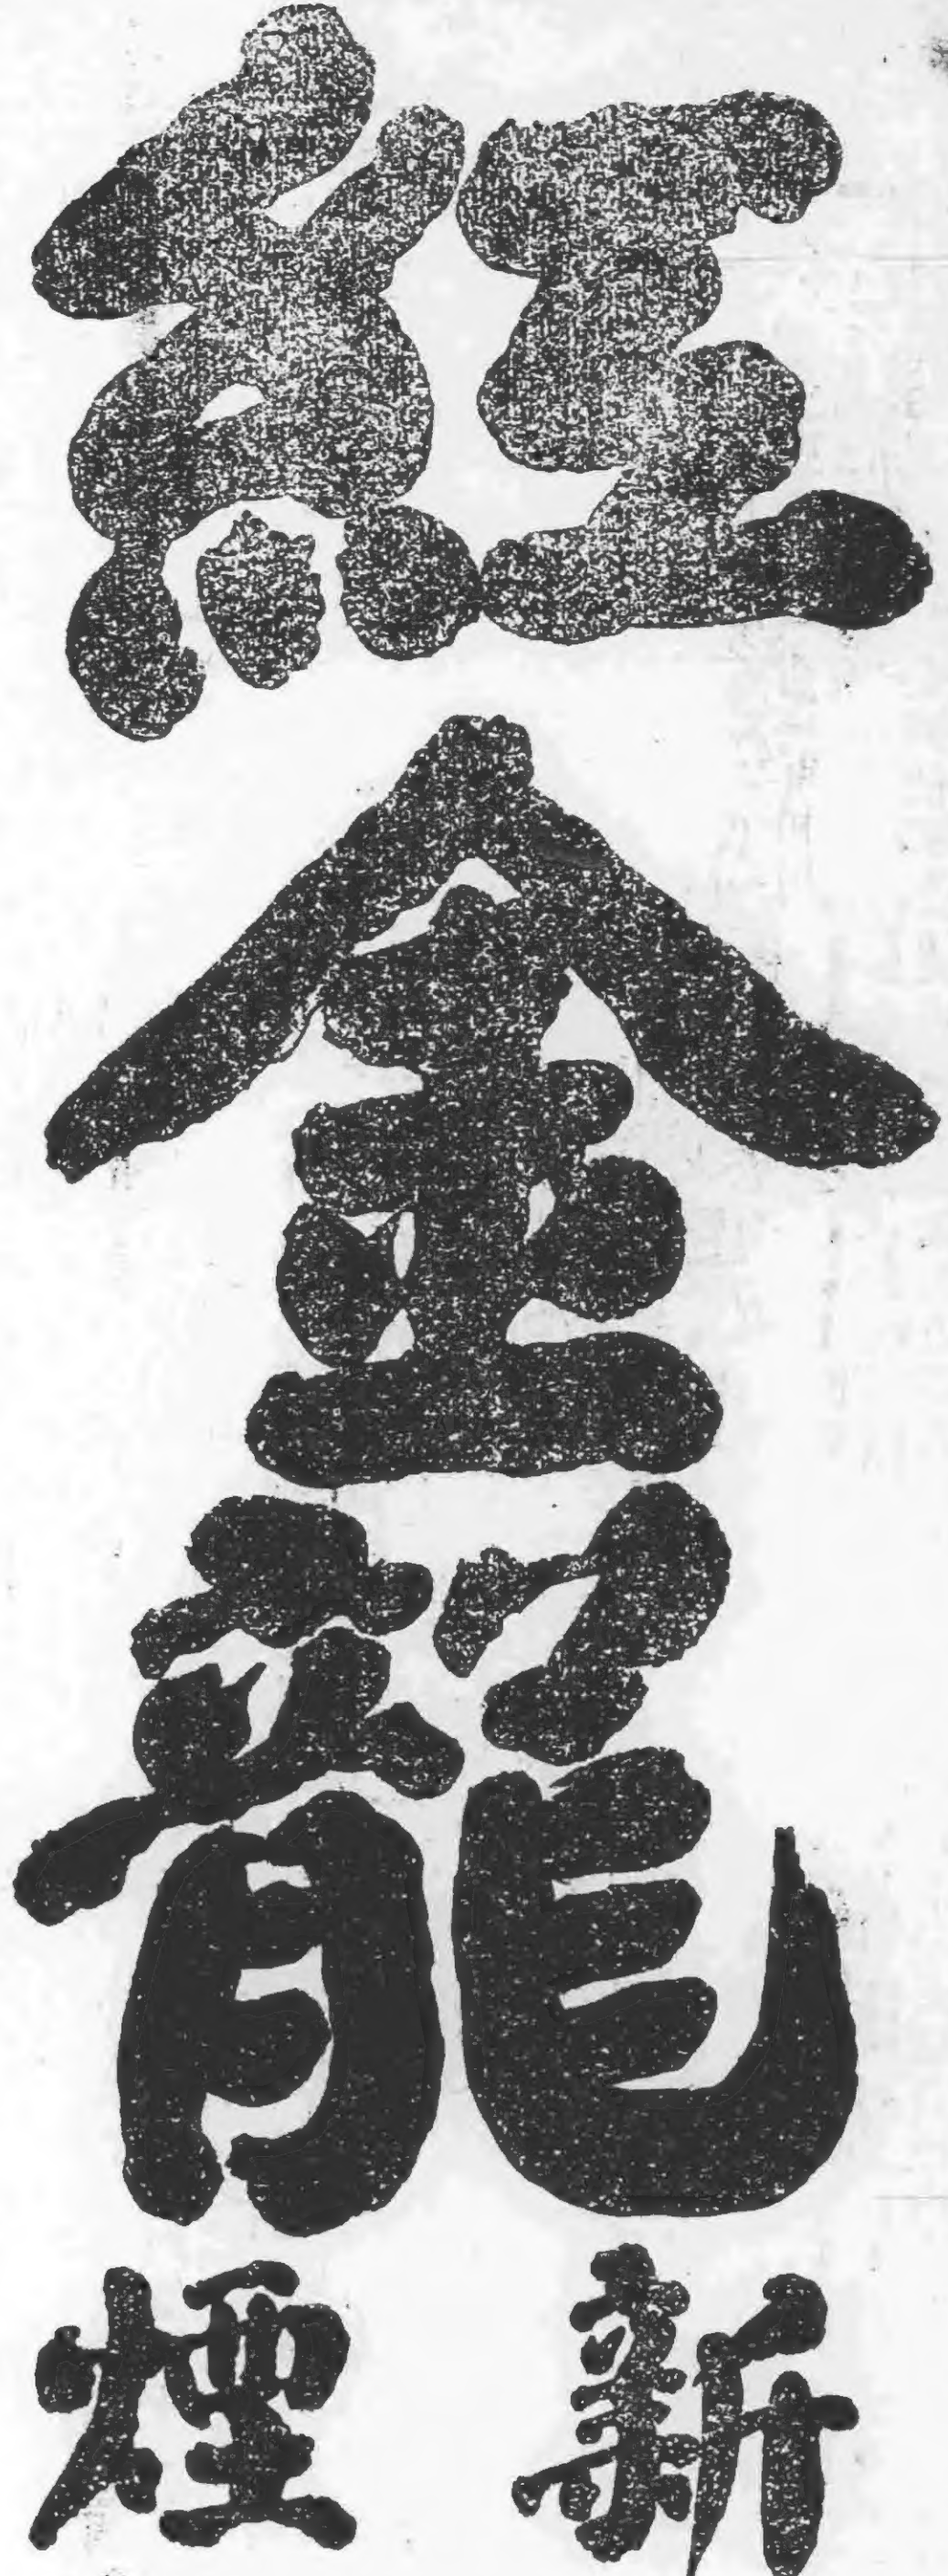 紅金龍
新煙